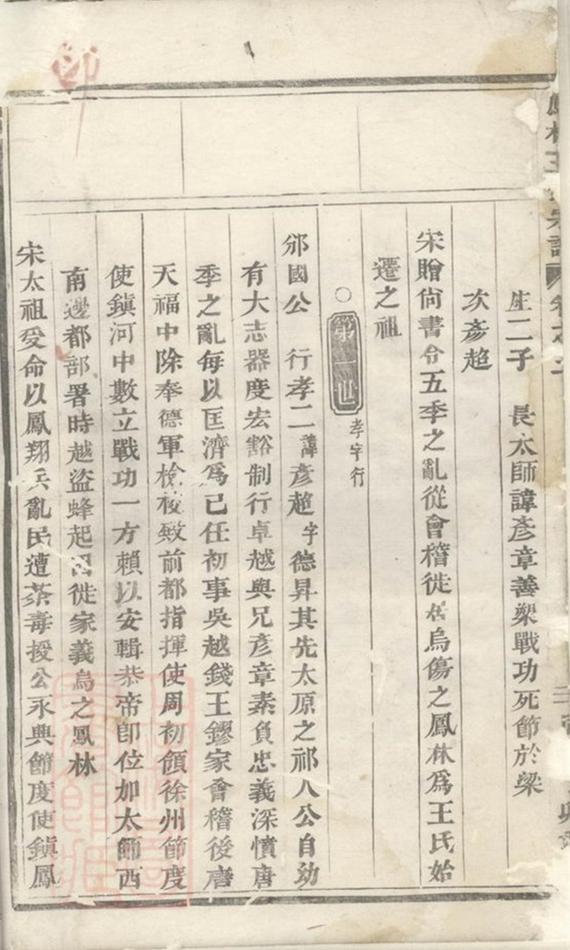 生二子 長太師諱彥章善槊戰功死節於梁
次彥超
宋贈尚書令五季之亂從會稽徙居烏傷之鳳林為王氏始
遷之祖
○第一世 孝字行
邠國公 行孝二諱彥超字德昇其先太原之祁人公自幼
有大志器度宏豁制行卓越與兄彥章素負忠義深憤唐
季之亂每以匡濟為己任初事吳越錢王鏐家會稽後唐
天福中除奉德軍檢校致前都指揮使周初領徐州節度
使鎮河中數立戰功一方賴以安輯恭帝卽位加太師西
南邊都部署時越盜蜂起因徙家義烏之鳳林
宋太祖受命以鳳翔兵亂民遭荼毒授公永興節度使鎮鳳